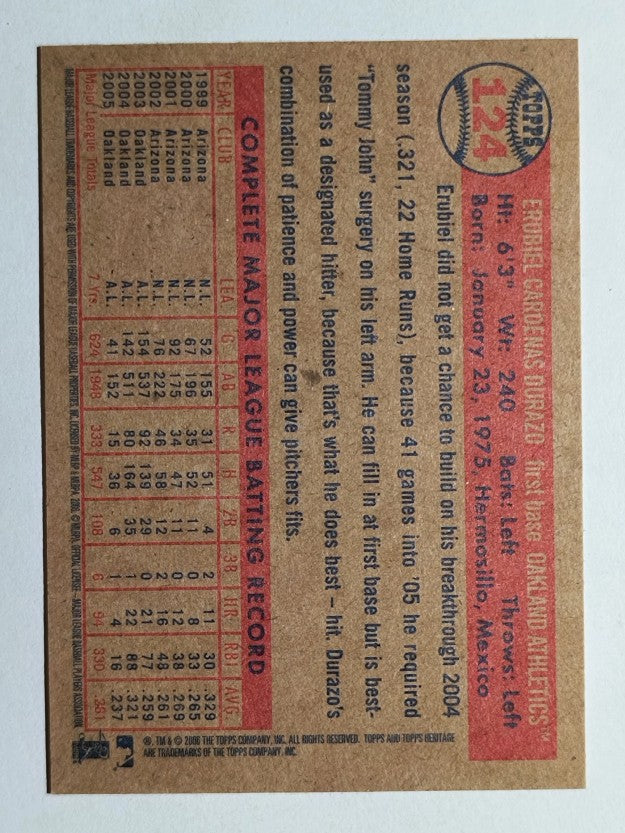 TOPPS
124
ERUBIEL CARDENAS DURAZO first base OAKLAND ATHLETICS™
Ht: 6'3" Wt: 240 Bats: Left Throws: Left
Born: January 23, 1975, Hermosillo, Mexico
Erubiel did not get a chance to build on his breakthrough 2004
season (.321, 22 Home Runs), because 41 games into '05 he required
"Tommy John" surgery on his left arm. He can fill in at first base but is best-
used as a designated hitter, because that's what he does best – hit. Durazo's
combination of patience and power can give pitchers fits.
COMPLETE MAJOR LEAGUE BATTING RECORD
YEAR CLUB LEA G AB R H 2B 3B HR RBI AVG.
1999 Arizona N.L. 52 155 31 51 4 2 11 30 .329
2000 Arizona N.L. 67 196 35 52 11 0 8 33 .265
2001 Arizona N.L. 92 175 34 47 11 0 12 38 .269
2002 Arizona N.L. 76 222 46 58 12 2 16 48 .261
2003 Oakland A.L. 154 537 92 139 29 0 21 77 .259
2004 Oakland A.L. 142 511 80 164 35 1 22 88 .321
2005 Oakland A.L. 41 152 15 36 6 1 4 16 .237
Major League Totals 7 Yrs. 624 1948 333 547 108 6 94 330 .281
MAJOR LEAGUE BASEBALL TRADEMARKS AND COPYRIGHTS ARE USED WITH PERMISSION OF MAJOR LEAGUE BASEBALL PROPERTIES, INC. © MLBPA, OFFICIAL LICENSEE - MAJOR LEAGUE BASEBALL PLAYERS ASSOCIATION
®, TM & © 2006 THE TOPPS COMPANY, INC. ALL RIGHTS RESERVED. TOPPS AND TOPPS HERITAGE
ARE TRADEMARKS OF THE TOPPS COMPANY, INC.